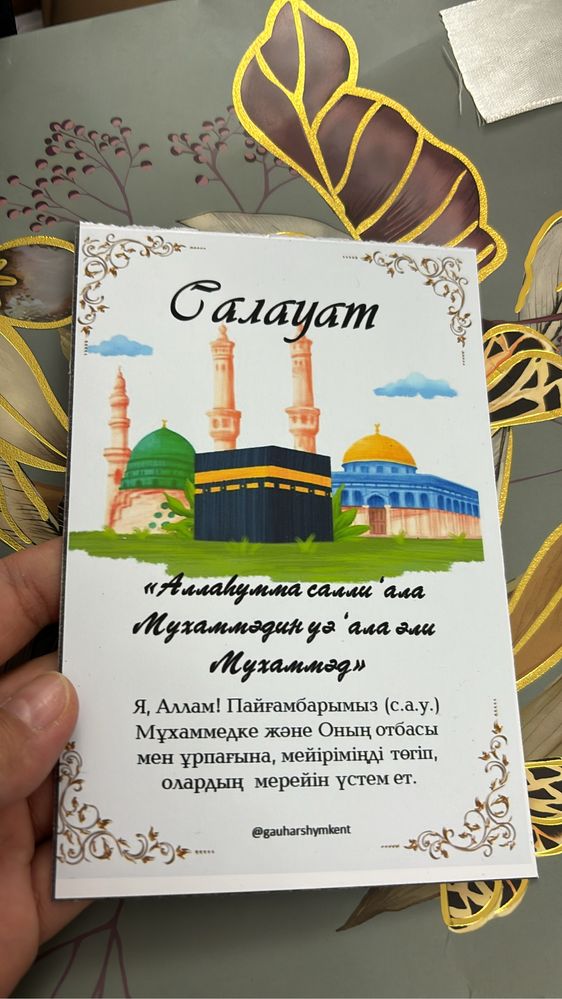 Салауат
«Аллаһумма салли ‘ала
Мұхаммәдин уә ‘ала әли
Мұхаммәд»
Я, Аллам! Пайғамбарымыз (с.а.у.)
Мұхаммедке және Оның отбасы
мен ұрпағына, мейіріміңді төгіп,
олардың мерейін үстем ет.
@gauharshymkent